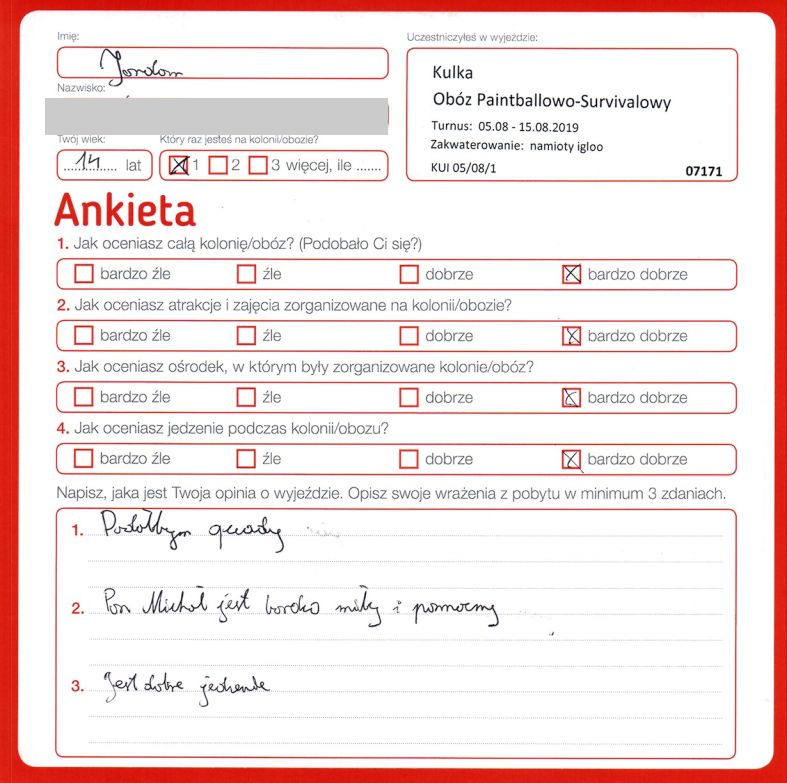 Imię:
Jordan
Nazwisko:
Twój wiek:
14 lat
Który raz jesteś na kolonii/obozie?
1 2 3 więcej, ile .......
Uczestniczyłeś w wyjeździe:
Kulka
Obóz Paintballowo-Survivalowy
Turnus: 05.08 - 15.08.2019
Zakwaterowanie: namioty igloo
KUI 05/08/1 07171
Ankieta
1. Jak oceniasz całą kolonię/obóz? (Podobało Ci się?)
bardzo źle źle dobrze bardzo dobrze
2. Jak oceniasz atrakcje i zajęcia zorganizowane na kolonii/obozie?
bardzo źle źle dobrze bardzo dobrze
3. Jak oceniasz ośrodek, w którym były zorganizowane kolonie/obóz?
bardzo źle źle dobrze bardzo dobrze
4. Jak oceniasz jedzenie podczas kolonii/obozu?
bardzo źle źle dobrze bardzo dobrze
Napisz, jaka jest Twoja opinia o wyjeździe. Opisz swoje wrażenia z pobytu w minimum 3 zdaniach.
1. quady
2. Pan Michał jest bardzo miły i pomocny
3. Jest dobre jedzenie